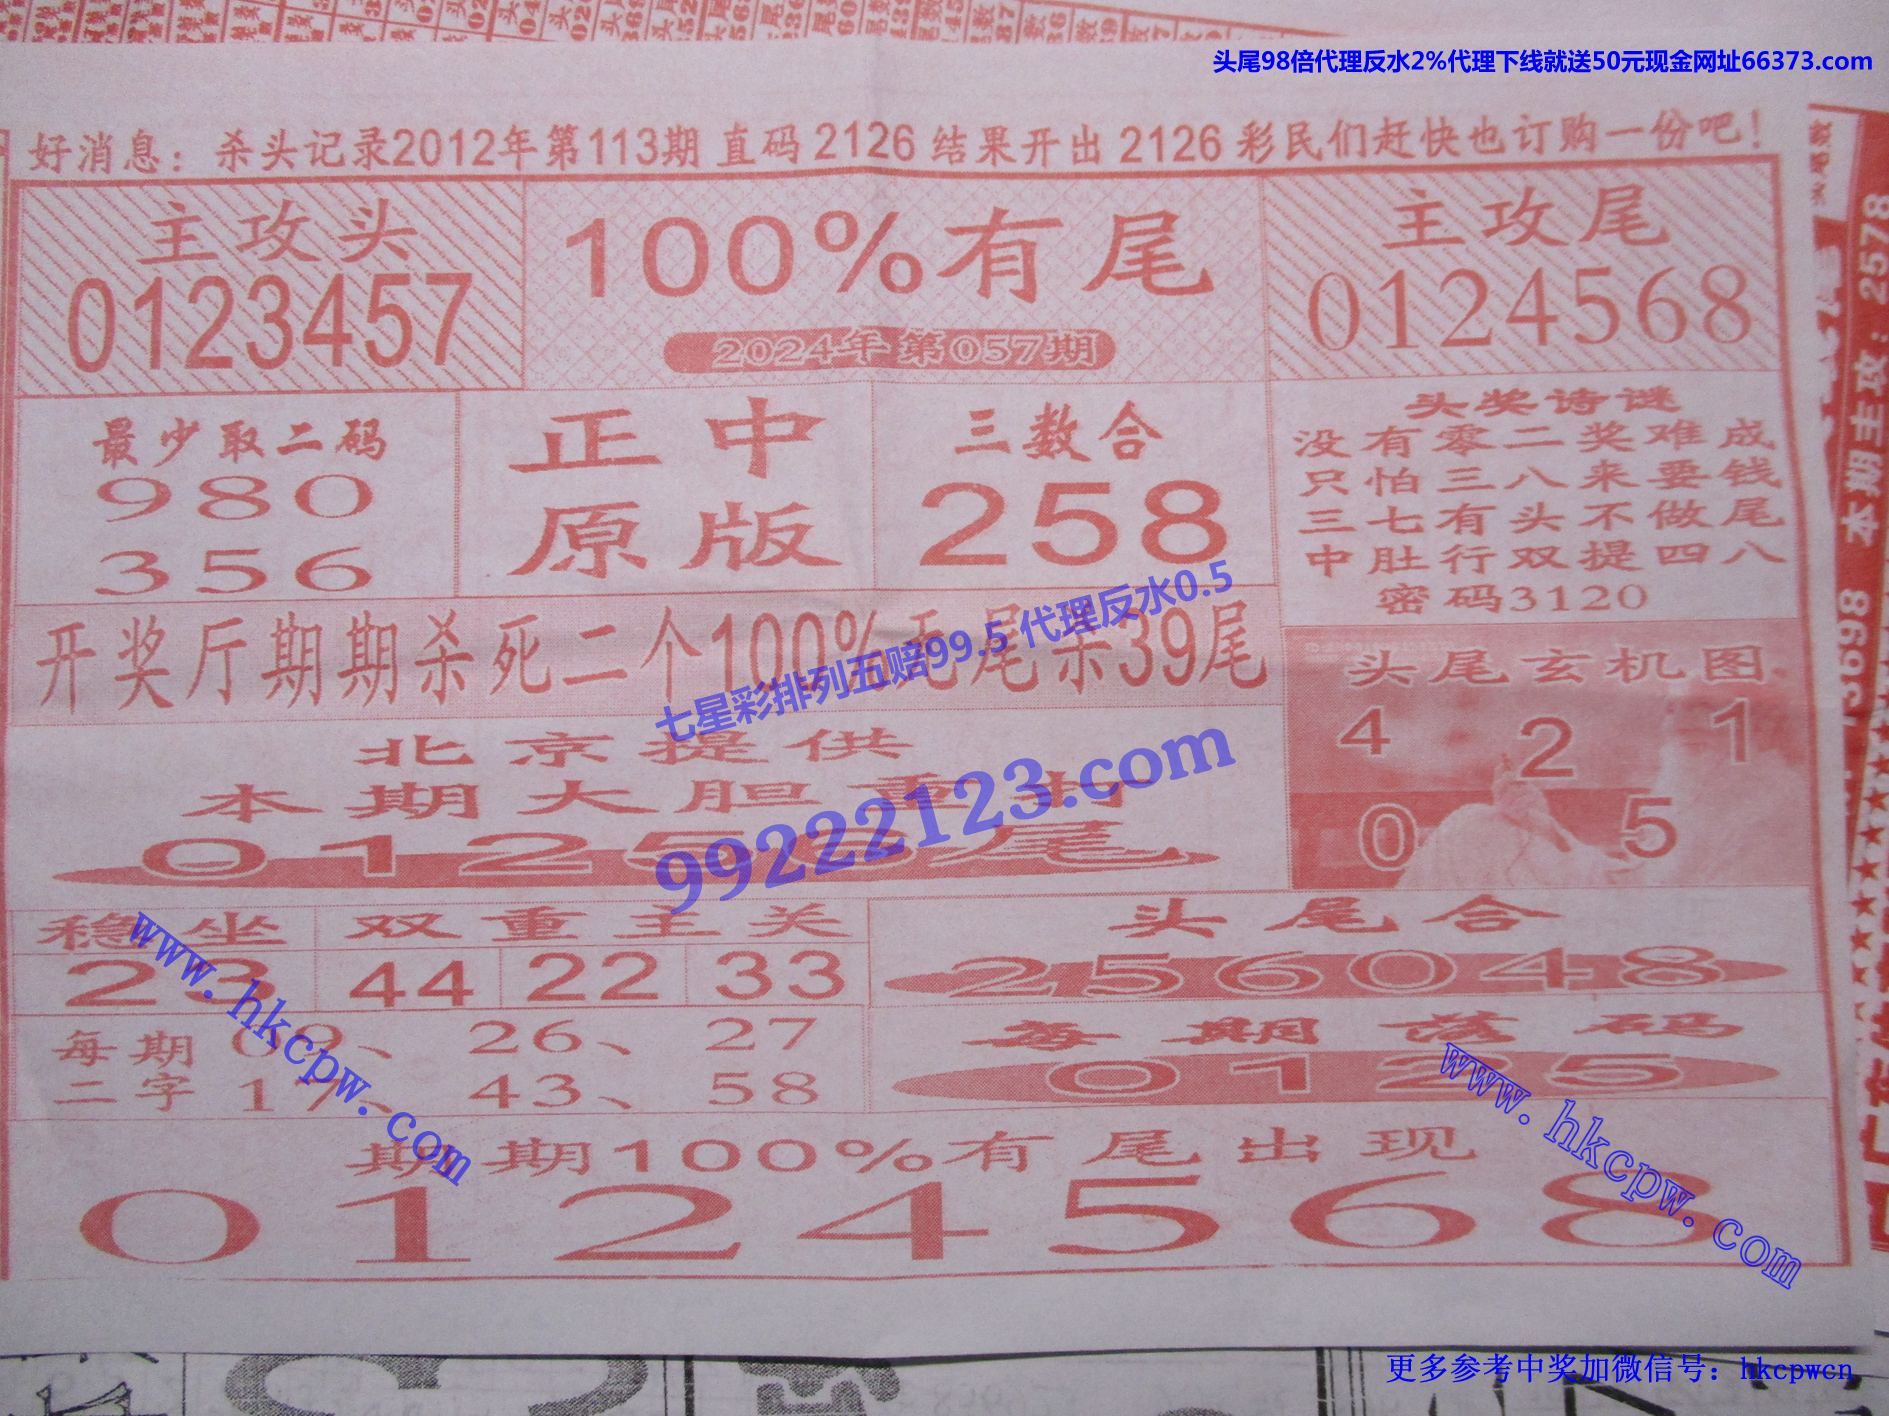 头尾98倍代理反水2%代理下线就送50元现金网址66373.com
好消息：杀头记录2012年第113期 直码 2126 结果开出 2126 彩民们赶快也订购一份吧！
主攻头
0123457
100%有尾
2024年第057期
主攻尾
0124568
最少取二码
980
356
正中
原版
三数合
258
头奖诗谜
没有零二奖难成
只怕三八来要钱
三七有头不做尾
中肚行双提四八
密码3120
开奖厅期期杀死二个100%
尾杀39尾
七星彩排列五赔99.5 代理反水0.5
99222123.com
头尾玄机图
4 2 1
0 5
北京提供
本期大胆重
尾
稳坐
23
双重主关
44 22 33
头尾合
256048
每期
二字
69、 26、 27
17、 43、 58
每期落码
0125
www.hkcpw.com
www.hkcpw.com
期期100%有尾出现
0124568
本期主攻：2578
3698
更多参考中奖加微信号：hkcpwcn